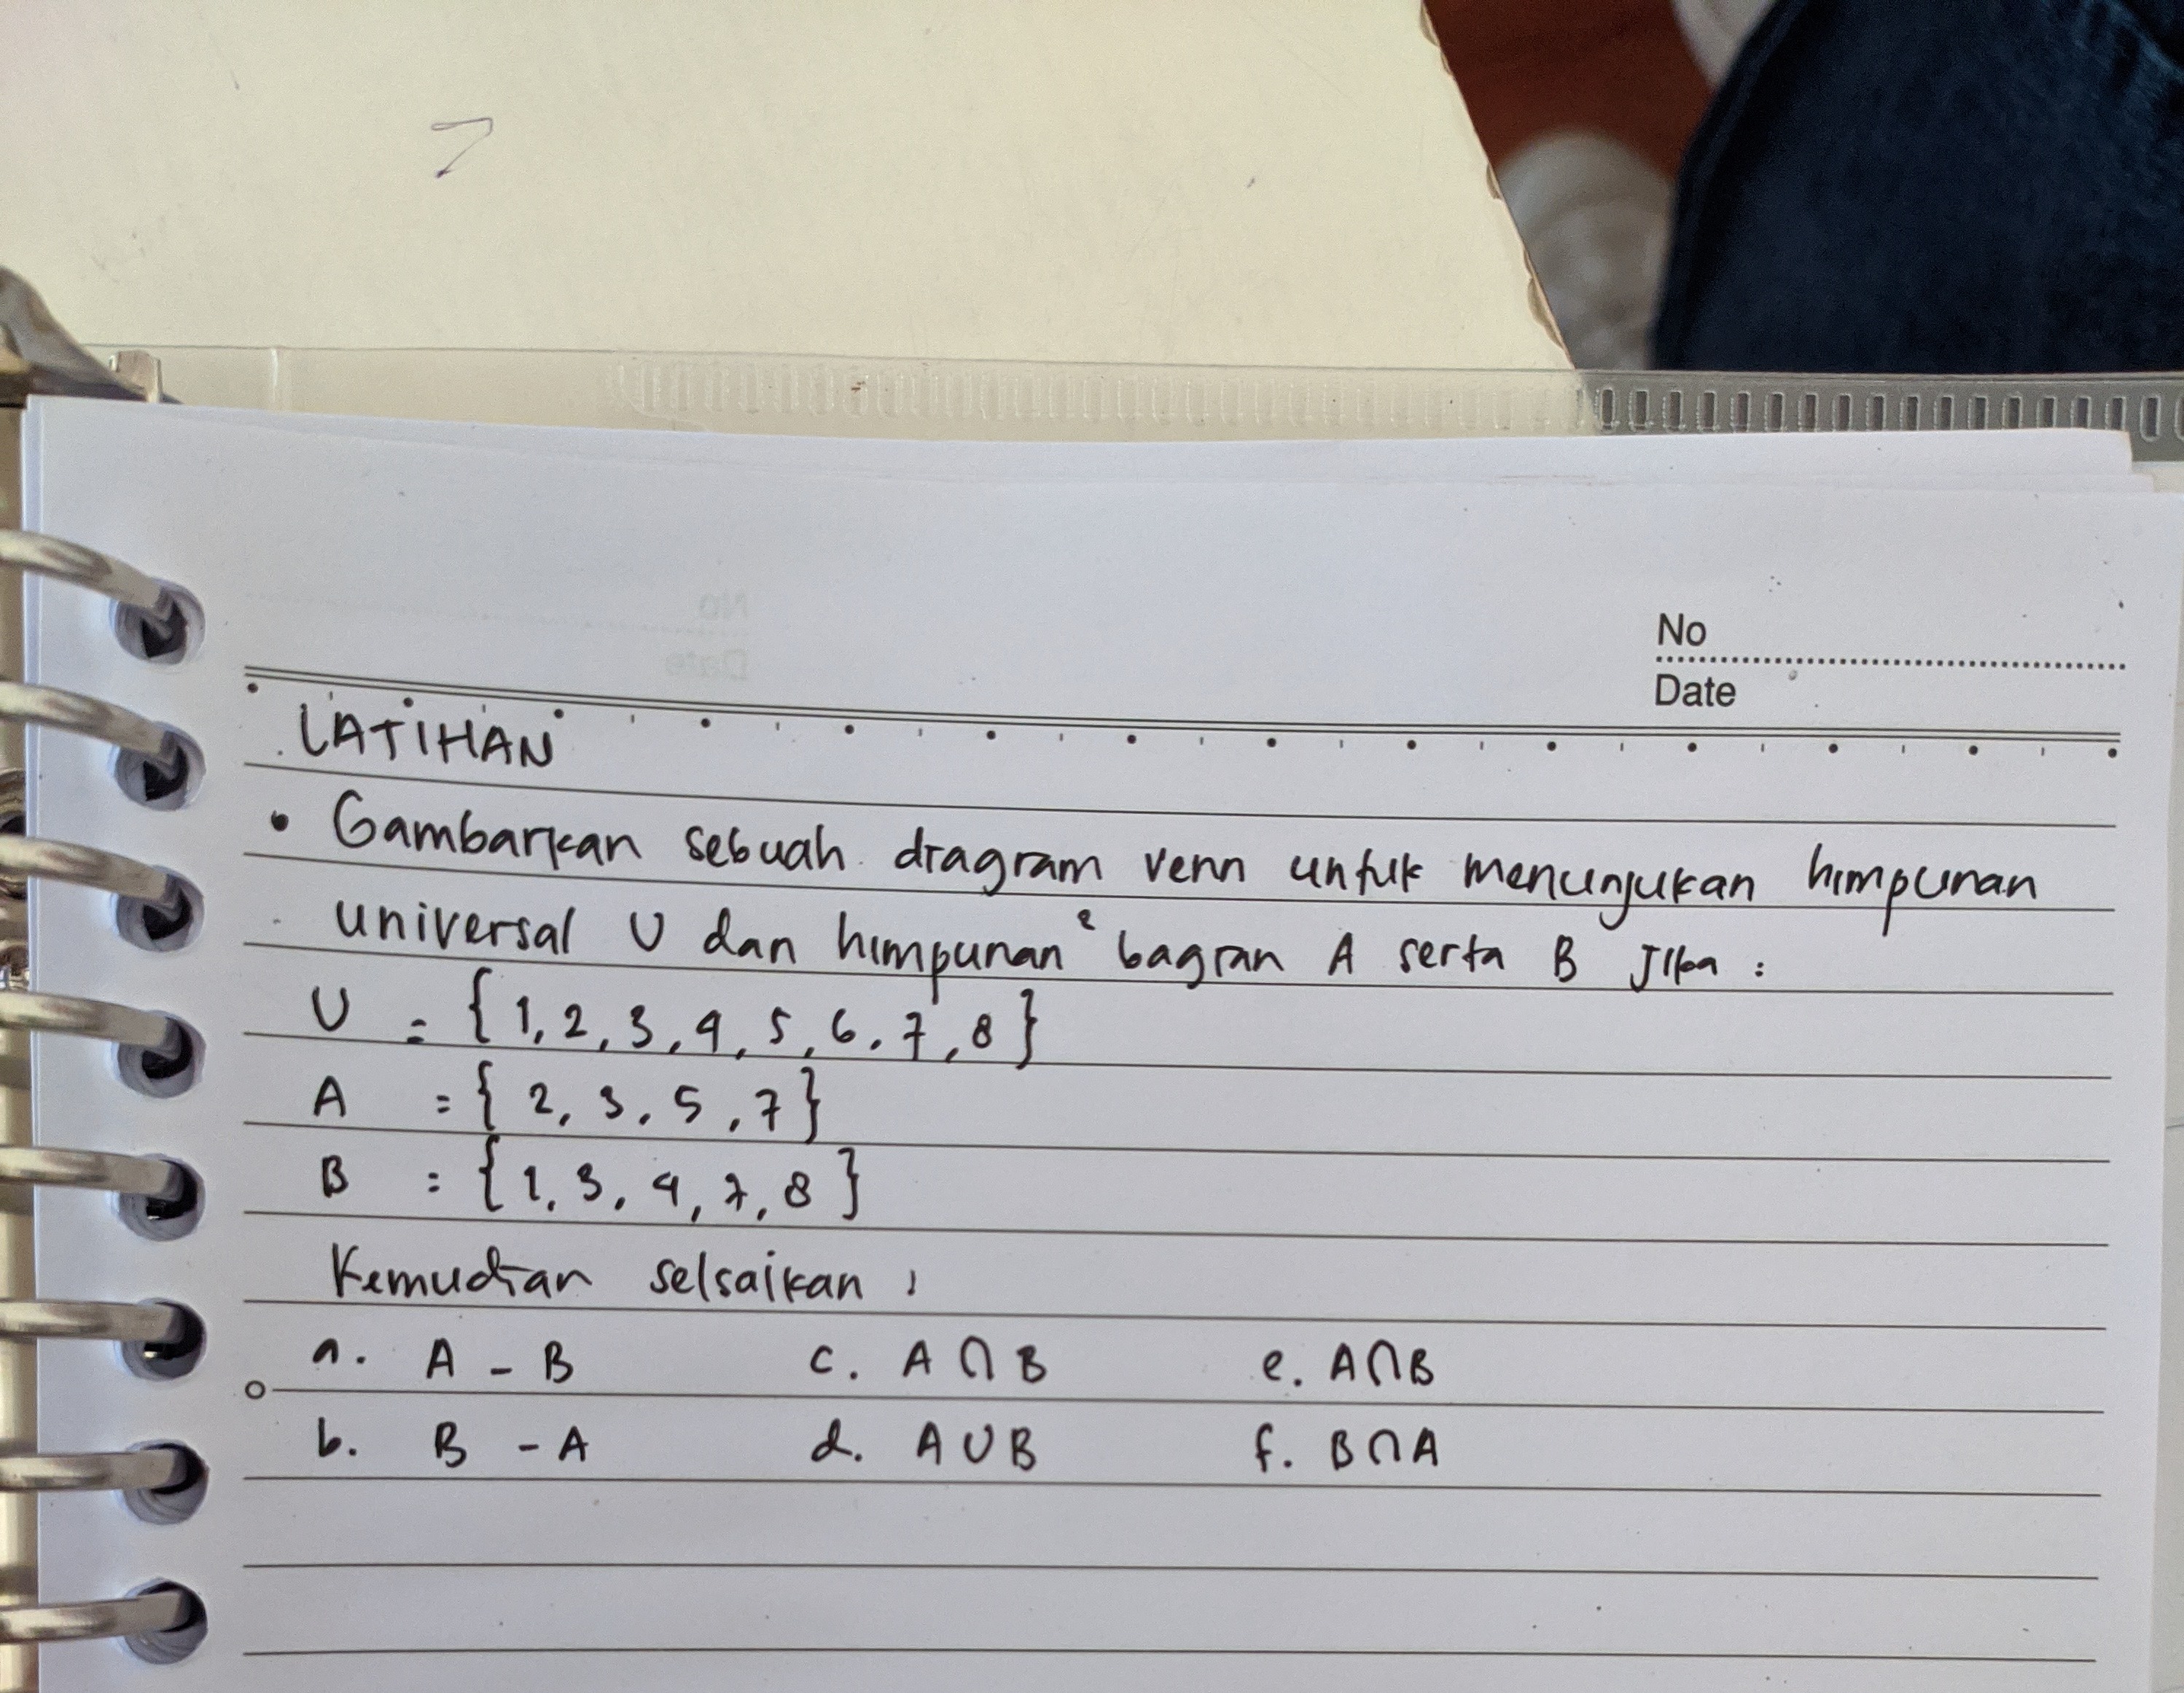 No
Date
LATIHAN
• Gambarkan sebuah diagram venn untuk menunjukan himpunan
universal U dan himpunan² bagian A serta B Jika :
U = { 1, 2, 3, 4, 5, 6, 7, 8 }
A = { 2, 3, 5, 7 }
B = { 1, 3, 4, 7, 8 }
Kemudian selsaikan :
a. A - B c. A ∩ B e. A ∩ B
b. B - A d. A ∪ B f. B ∩ A